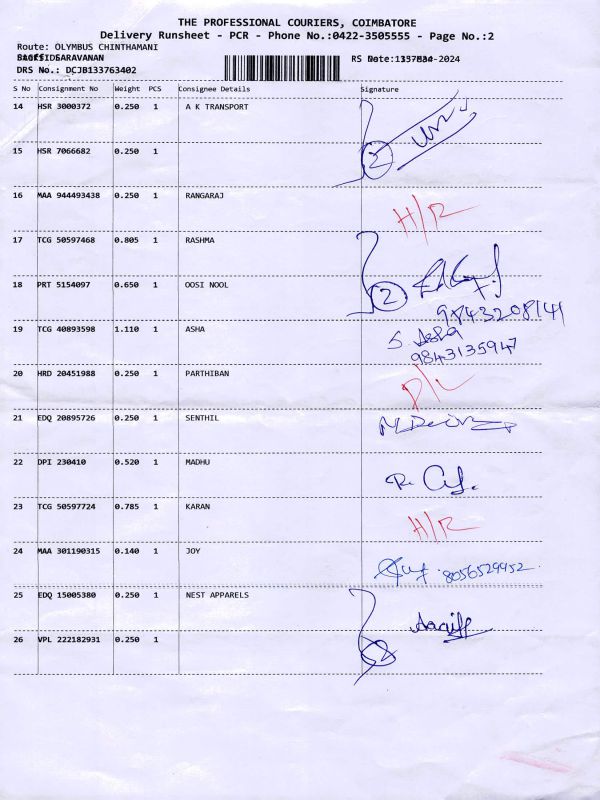 THE PROFESSIONAL COURIERS, COIMBATORE
Delivery Runsheet - PCR - Phone No.:0422-3505555 - Page No.:2
Route: OLYMBUS CHINTHAMANI
SARAVANAN
-2024
DRS No.: DCJB133763402
S No Consignment No Weight PCS Consignee Details Signature
14 HSR 3000372 0.250 1 A K TRANSPORT
2
15 HSR 7066682 0.250 1
16 MAA 944493438 0.250 1 RANGARAJ H/R
17 TCG 50597468 0.805 1 RASHMA
18 PRT 5154097 0.650 1 OOSI NOOL 2
9843208141
19 TCG 40893598 1.110 1 ASHA S Asha
9843135947
20 HRD 20451988 0.250 1 PARTHIBAN D/L
21 EDQ 20895726 0.250 1 SENTHIL
22 DPI 230410 0.520 1 MADHU
23 TCG 50597724 0.785 1 KARAN H/R
24 MAA 301190315 0.140 1 JOY 8056529952
25 EDQ 15005380 0.250 1 NEST APPARELS
26 VPL 222182931 0.250 1 2